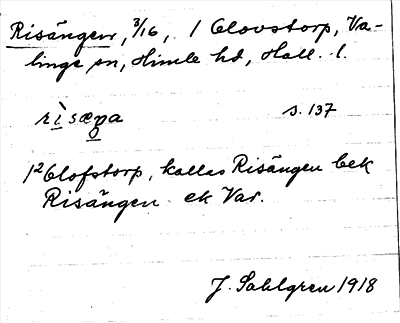 Risängen, 3/16, 1 Olovstorp, Va-
linge sn, Himle hd, Hall. l.
rìsæŋa s. 137
1² Olofstorp, kallas Risängen bek
Risängen ek Var.
J. Sahlgren 1918